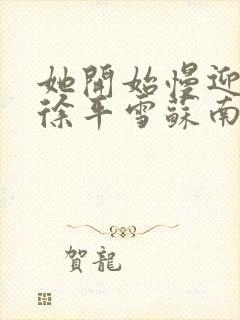 她開始慢迎
徐平雪蘇南
賀龍